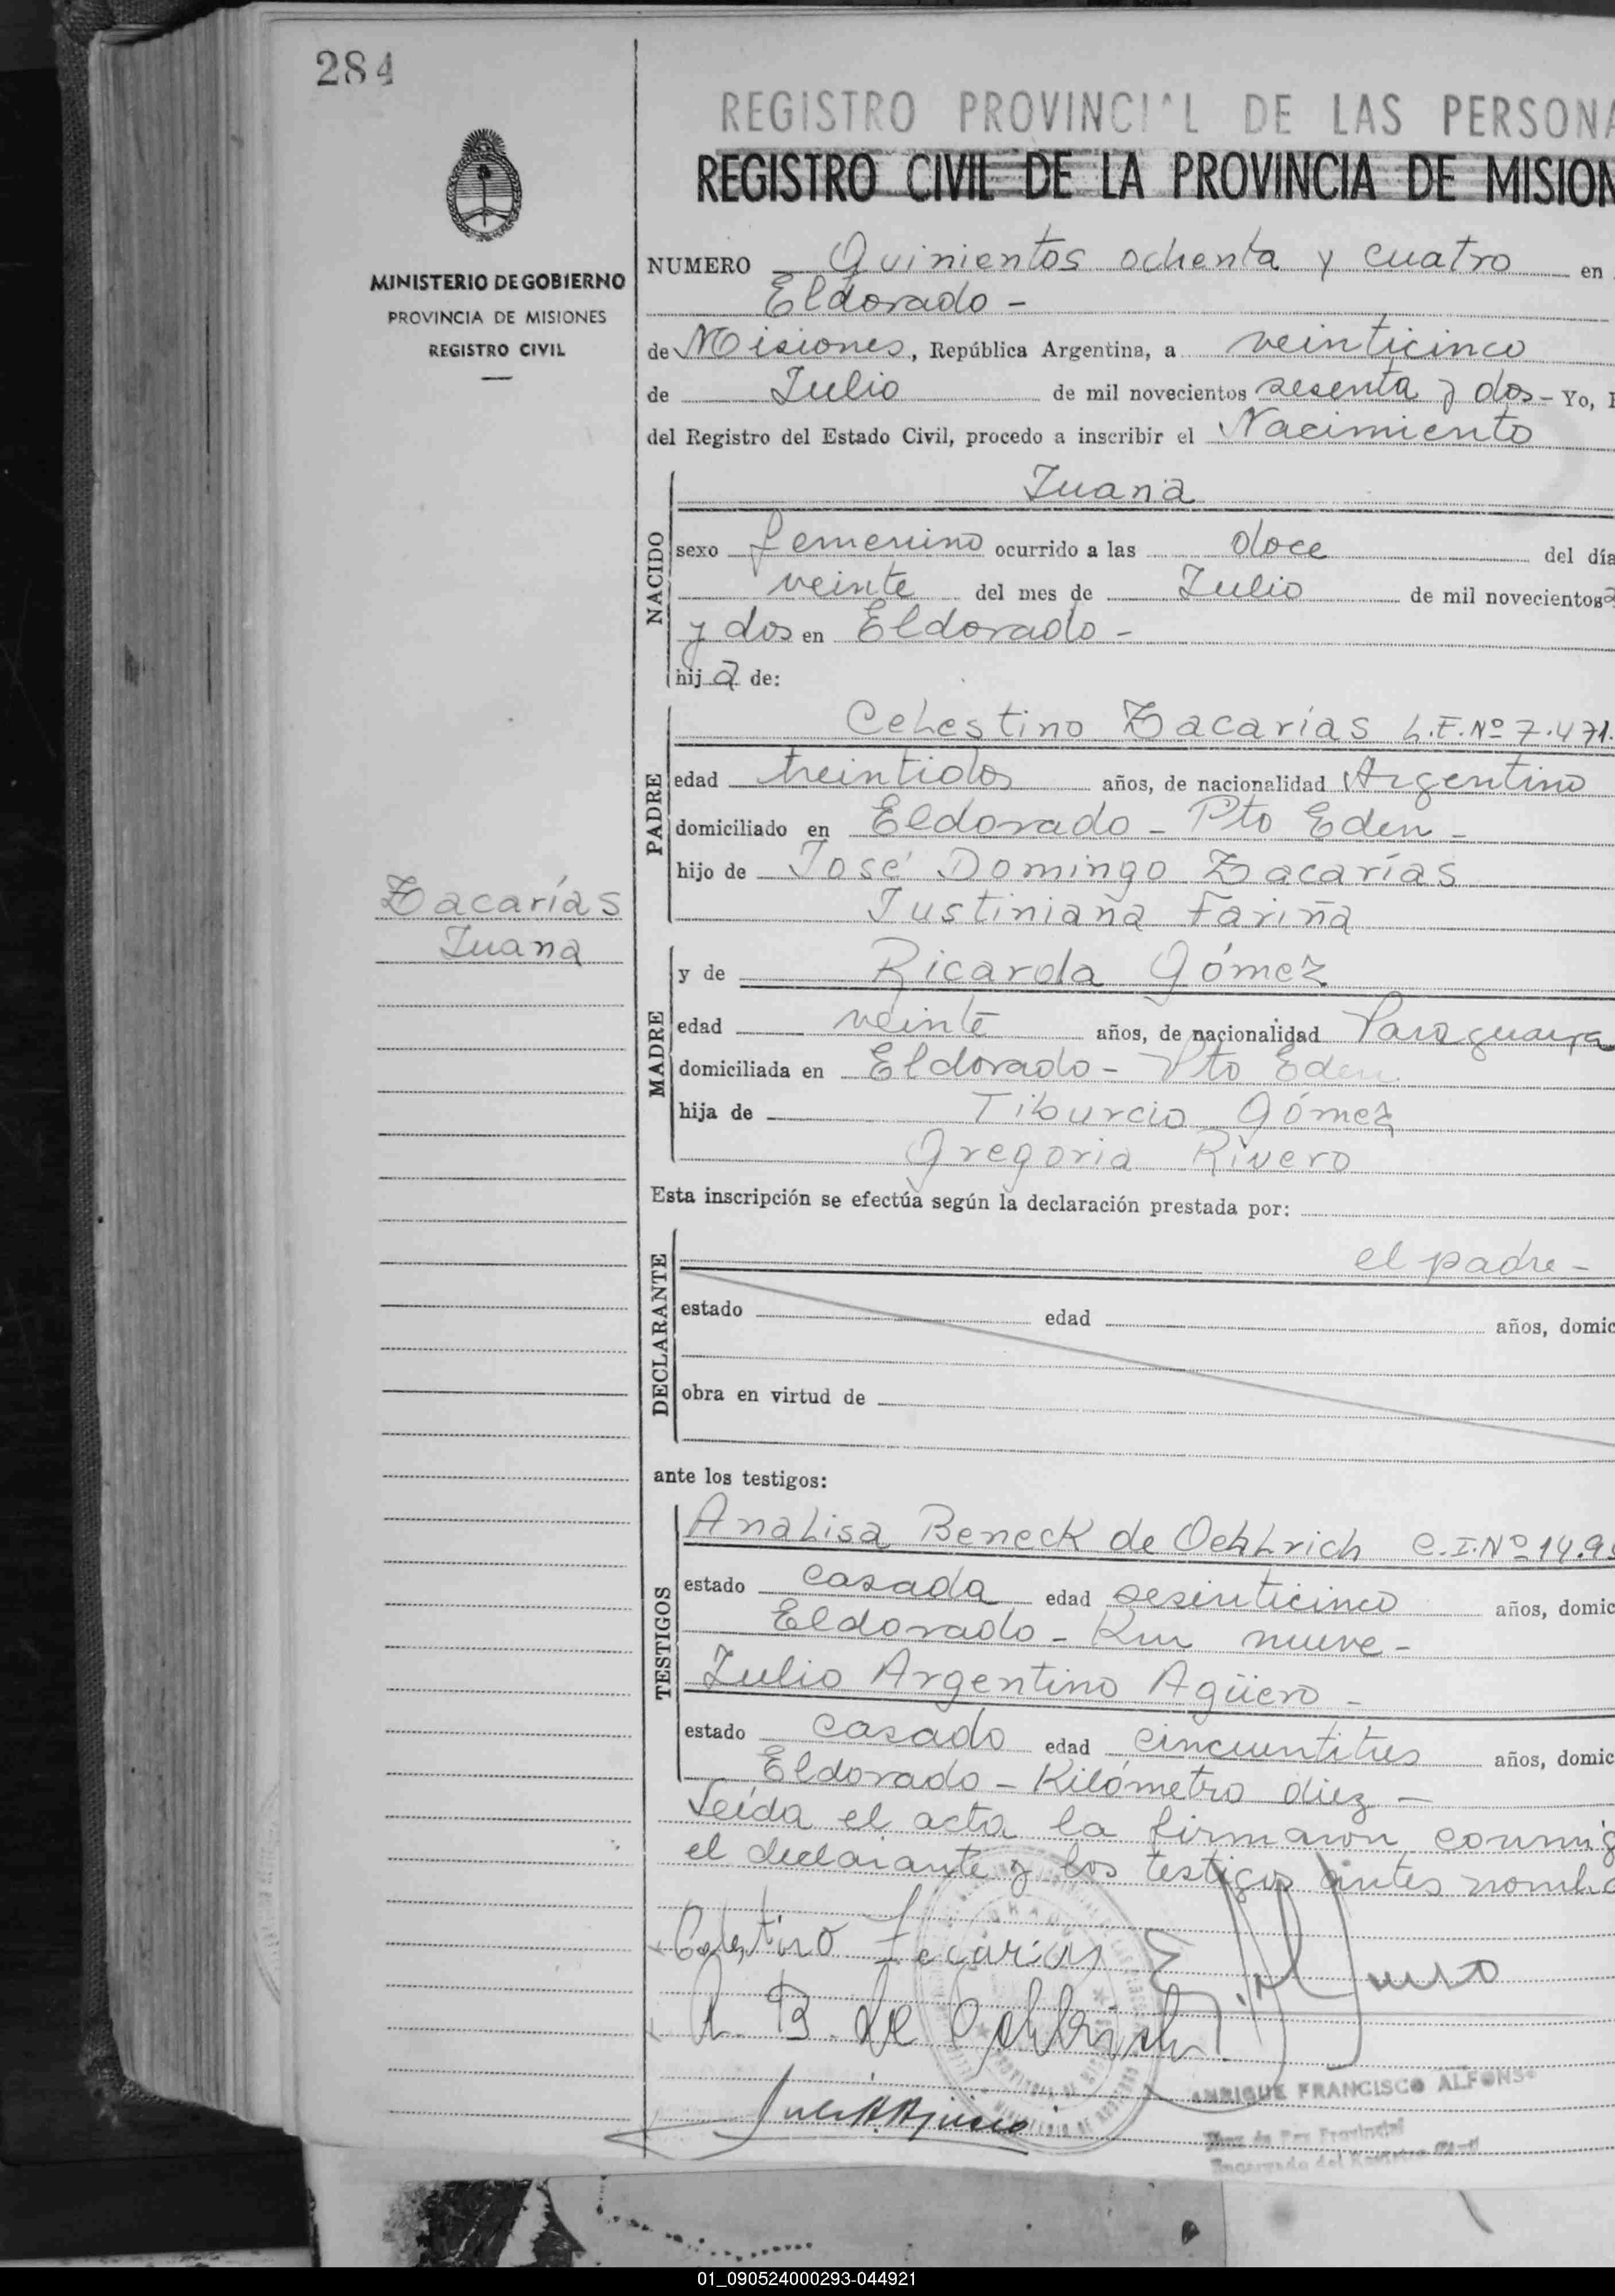 284
REGISTRO PROVINCIAL DE LAS PERSONA
REGISTRO CIVIL DE LA PROVINCIA DE MISION
MINISTERIO DE GOBIERNO
PROVINCIA DE MISIONES
REGISTRO CIVIL
NUMERO Quinientos ochenta y cuatro en
Eldorado -
de Misiones, República Argentina, a veinticinco
de Julio de mil novecientos sesenta y dos - Yo,
del Registro del Estado Civil, procedo a inscribir el Nacimiento
NACIDO
Juana
sexo femenino ocurrido a las doce del día
veinte del mes de Julio de mil novecientos
y dos en Eldorado -
hija de:
PADRE
Celestino Zacarías L.E. Nº 7.471.
edad treintidos años, de nacionalidad Argentino
domiciliado en Eldorado - Pto Eden -
hijo de José Domingo Zacarías
Justiniana Fariña
Zacarías
Juana
MADRE
y de Ricarda Gómez
edad veinte años, de nacionalidad Paraguaya
domiciliada en Eldorado - Pto Eden
hija de Tiburcio Gómez
Gregoria Rivero
Esta inscripción se efectúa según la declaración prestada por:
DECLARANTE
el padre -
estado edad años, domic
obra en virtud de
ante los testigos:
TESTIGOS
Analisa Beneck de Oehlrich C.I. Nº 14.9
estado casada edad sesenticinco años, domic
Eldorado - Km nueve -
Julio Argentino Agüero -
estado casado edad cincuentitres años, domic
Eldorado - Kilómetro diez -
Leída el acta la firmaron conmig
el declarante y los testigos antes nomb
Celestino Zacarias
A. B. de Oehlrich
ENRIQUE FRANCISCO ALFONSO
Juez de Paz Provincial
Encargado del Registro Civil
01_090524000293-044921